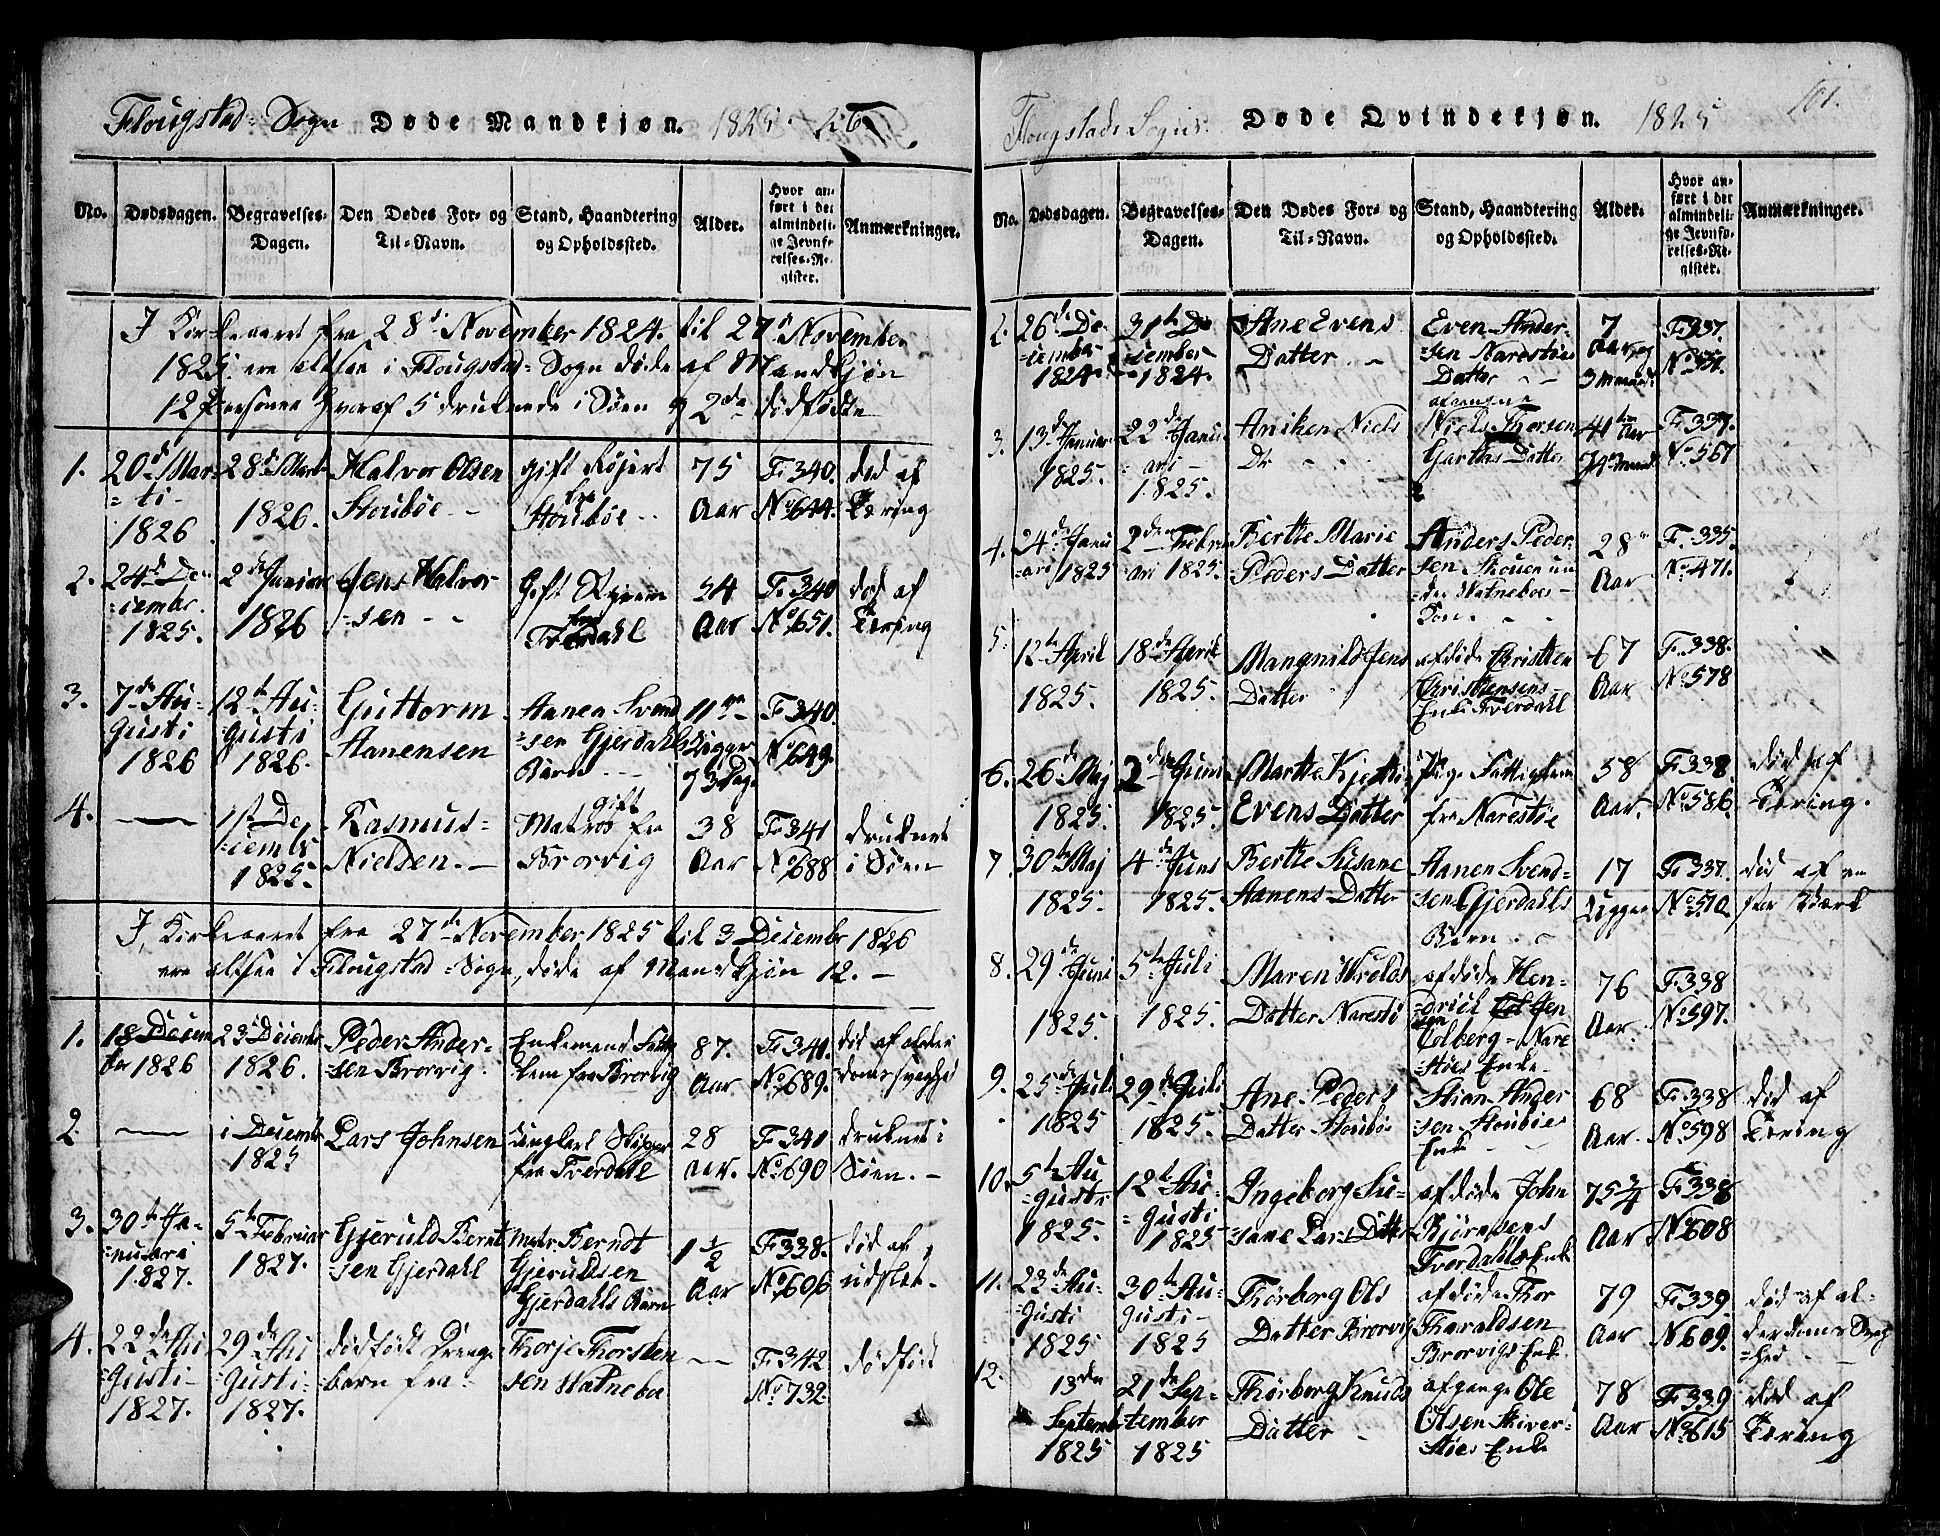 Flougstad Sogn Døde Mandkjøn. 1825. 26
No. Dødsdagen. Begravelses-Dagen. Den Dødes For- og Til-Navn. Stand, Haandtering og Opholdssted. Alder. Hvor anført i det almindelige Jevnførelses-Register. Anmærkninger.
I Kirkeaaret fra 28de November 1824. til 27de November
1825. ere altsaa i Flougstad-Sogn døde af Mandkjøn
12 Personer hvoraf 5 druknede i Søen og 2de dødfødte
1. 20de Marti 1826 28de Marti 1826. Halvor Olsen Stoubøe gift fra Stoubøe 75 Aar F. 340. No. 644. død af Tæring
2. 24de Decembr. 1825. 2de Januar 1826 Jens Halvorsen gift fra Tverdahl 54 Aar F. 340 No. 651. død af Tæring
3. 7de Augusti 1826 12te Augusti 1826. Guttorm Aanensen Aanen Svendsen Gjerdahls Barn 11 Uger og 3 Dage F. 340 No. 649.
4. — 1ste Decembr 1825. Rasmus Nielsen gift Matros fra Brorvig 38 Aar F. 341 No. 688 druknet i Søen
I Kirkeaaret fra 27de November 1825 til 3 Decembr 1826
ere altsaa i Flougstad-Sogn, døde af Mandkjøn 12.
1. 18 December 1826 23de Decembr 1826. Peder Andersen Brorvig. Enkemand Lem fra Brorvig 87. Aar F. 341. No. 689. død af alderdomssvaghed
2 — i Decembr 1825 Lars Johnsen Ungkarl Skipper fra Tverdahl 28 Aar. F. 341 No. 690 druknet i Søen.
3. 30te Januari 1827. 5te Februar 1827. Gjeruld Berntsen Gjerdahl Matr. Berndt Gjeruldsen Gjerdahls Barn 1 1/2 Aar F. 338. No. 606 død af udslet.
4. 22de Augusti 1827. 29de Augusti 1827. dødfødt Drengebarn fra Thorje Thorstensen Watneboe — F. 342 No. 732. dødfødt
Flougstads Sogns. Døde Qvindekjøn. 1825 101.
No. Dødsdagen. Begravelses-Dagen. Den Dødes For- og Til-Navn. Stand, Haandtering og Opholdssted. Alder. Hvor anført i det almindelige Jevnførelses-Register. Anmærkninger.
2. 26de December 1824. 31te December 1824. Ane Evens Datter Even Andersen Narestøes Datter 7 Aar og 3 Maaned. F. 337. No. 557.
3. 13de Januar 1825. 22de Januari 1825. Aniken Niels Dr afgangne Niels Thorsen Garthas Datter 41 Aar F. 337. No. 567
4. 24de Januari 1825 2den Februari 1825. Berthe Marie Peders Datter Anders Pedersen Skouen under Watneboe Kone 28 Aar F. 335. No. 471.
5. 12te April 1825. 18de April 1825. Mangnild Jens Datter afdøde Christen Christensens Enke Tverdahl 67 Aar F. 338. No. 578
6. 26de Maj 1825. 2den Juni 1825. Marthe Kjestie Evens Datter Pige Fattiglem fra Narestøe 58 Aar. F. 338. No. 586. død af Tæring.
7 30te Maj 1825. 4de Juni 1825. Berthe Susane Aanens Datter Aanen Svendsen Gjerdahls Barn 17 Uger F. 337. No. 570. død af en
8. 29de Juni 1825. 5te Juli 1825. Maren Datter Narestø afdøde Hendrick Colberg Narestøes Enke 76 Aar. F. 338 No. 597.
9. 25de Juli 1825 29de Juli 1825. Ane Peders Datter Stoubøe Stian Andersen Stoubøes Enke 68 Aar. F. 338 No. 598 død af Tæring
10. 5te Augusti 1825. 12te Augusti 1825 Ingeborg Susane Lars Datter afdøde John Bjørnsens Tverdahls Enke 75 3/4 Aar F. 338 No. 608
11. 23de Augusti 1825 30te Augusti 1825 Thorborg Ols Datter Brorvig afdøde Thor Tharaldsen Brorvigs Enke 79 Aar F. 339 No. 609. død af alderdoms Svaghed
12. 13de September 1825 21de September 1825 Thørborg Knuds Datter afgangne Ole Olsen Skiverstøes Enke 78 Aar F. 339 No. 615 død af Tæring